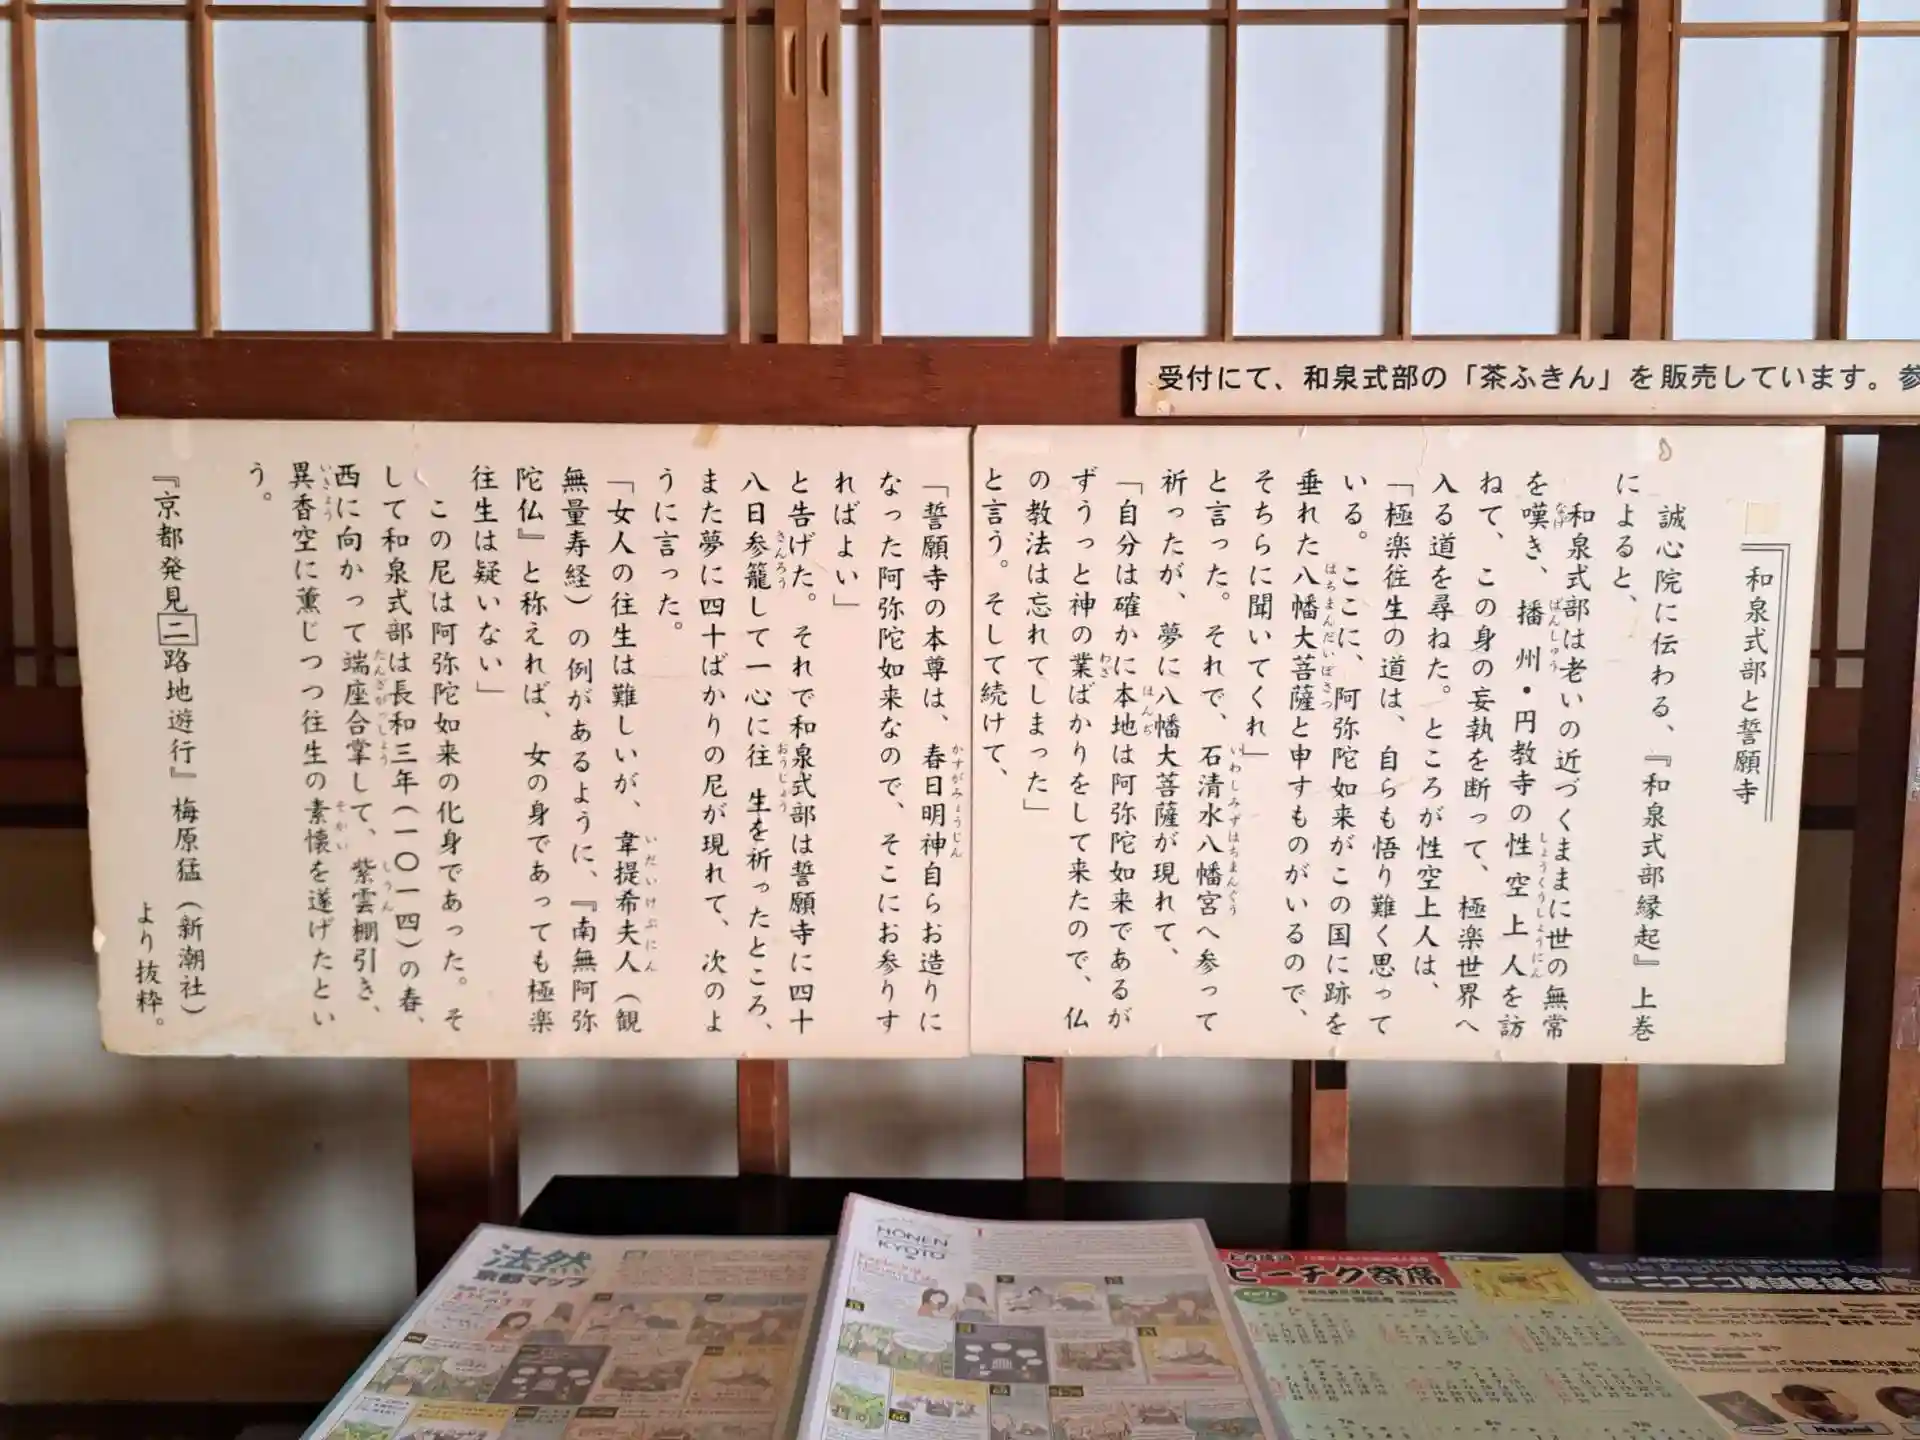 受付にて、和泉式部の「茶ふきん」を販売しています。参
和泉式部と誓願寺
誠心院に伝わる、『和泉式部縁起』上巻
によると、
和泉式部は老いの近づくままに世の無常
を嘆き、播州・円教寺の性空上人を訪
ねて、この身の妄執を断って、極楽世界へ
入る道を尋ねた。ところが性空上人は、
「極楽往生の道は、自らも悟り難く思って
いる。ここに、阿弥陀如来がこの国に跡を
垂れた八幡大菩薩と申すものがいるので、
そちらに聞いてくれ」
と言った。それで、石清水八幡宮へ参って
祈ったが、夢に八幡大菩薩が現れて、
「自分は確かに本地は阿弥陀如来であるが
ずうっと神の業ばかりをして来たので、仏
の教法は忘れてしまった」
と言う。そして続けて、
「誓願寺の本尊は、春日明神自らお造りに
なった阿弥陀如来なので、そこにお参りす
ればよい」
と告げた。それで和泉式部は誓願寺に四十
八日参籠して一心に往生を祈ったところ、
また夢に四十ばかりの尼が現れて、次のよ
うに言った。
「女人の往生は難しいが、韋提希夫人（観
無量寿経）の例があるように、『南無阿弥
陀仏』と称えれば、女の身であっても極楽
往生は疑いない」
この尼は阿弥陀如来の化身であった。そ
して和泉式部は長和三年（一〇一四）の春、
西に向かって端座合掌して、紫雲棚引き、
異香空に薫じつつ往生の素懐を遂げたとい
う。
『京都発見二路地遊行』梅原猛（新潮社）
より抜粋。
法然
京都マップ
HŌNEN
KYOTO
ピーチク寄席